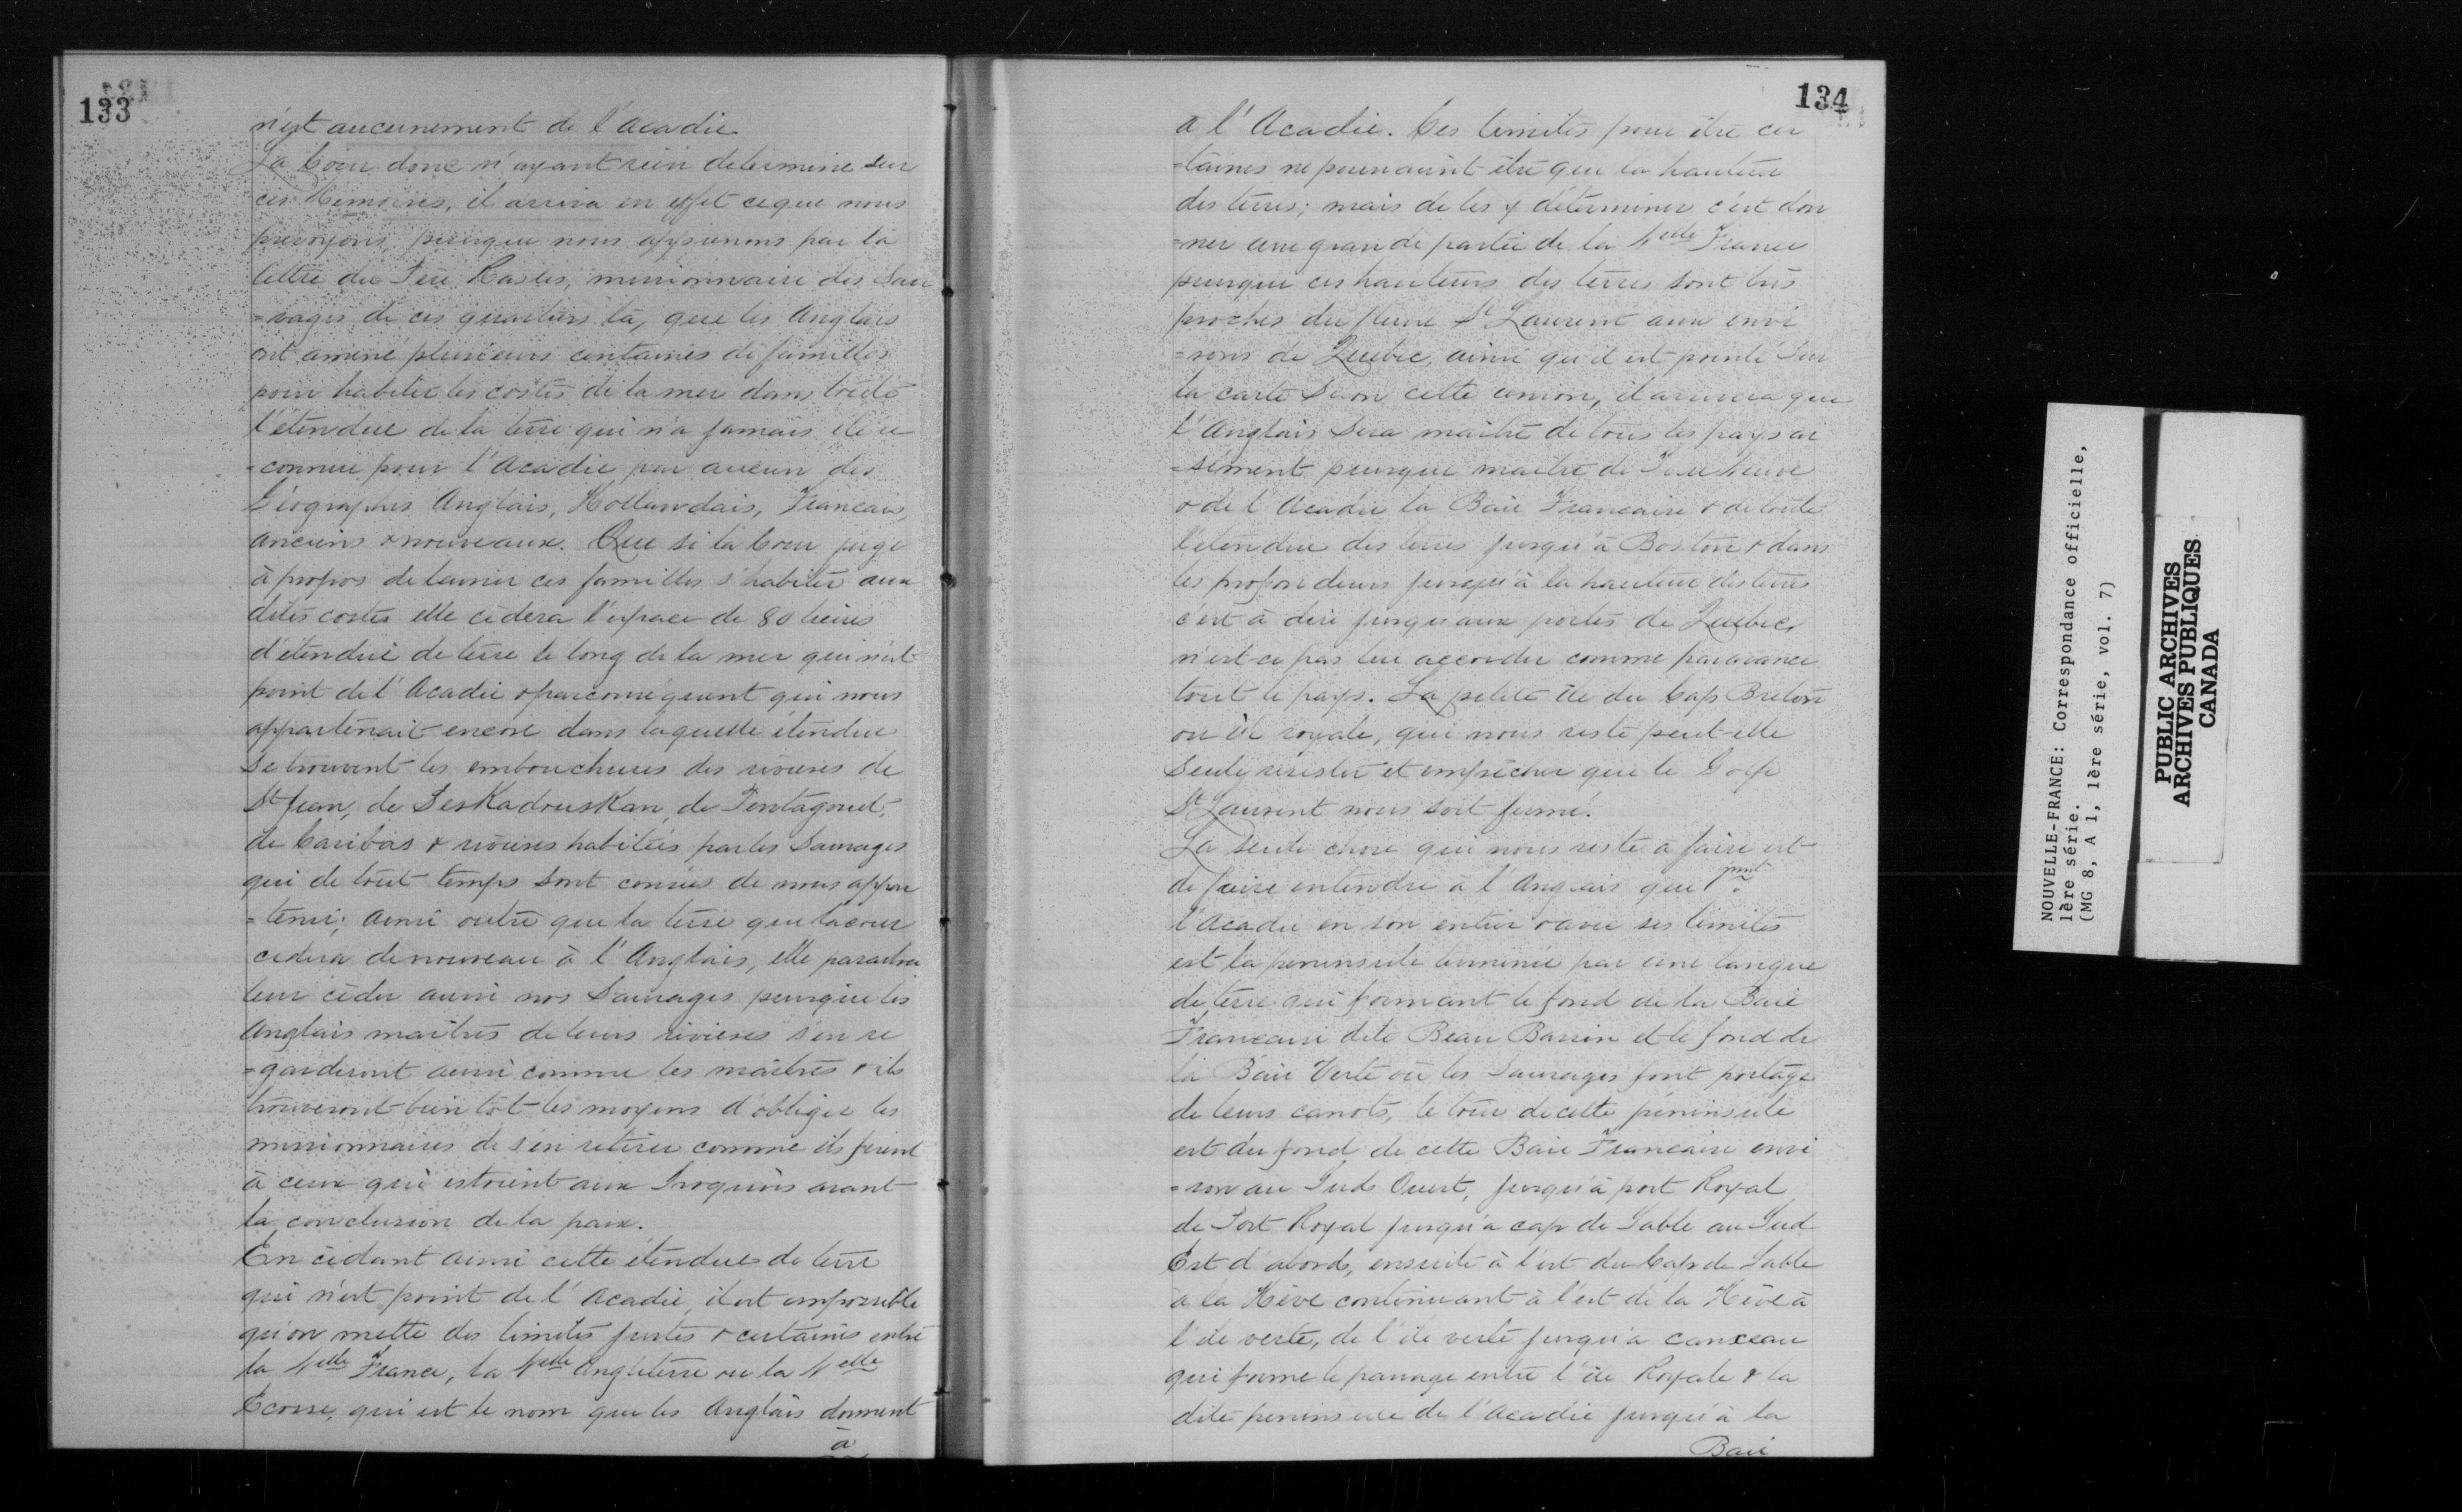 133
n'est aucunement de l'Acadie
La Cour donc n'ayant rien determiné sur
ces Memoires, il arriva en effet ce que nous
prevoyons, puisque nous apprenons par la
lettre du Pere Rasles, missionnaire des Sau
=vages de ces quartiers là, que les Anglais
ont amené plusieurs centaines de familles
pour habiter les costes de la mer dans toute
l'étendue de la terre qui n'a jamais été re
=connue pour l'Acadie par aucun des
Géographes Anglais, Hollandais, Francais,
anciens & nouveaux. Que si la Cour juge
à propos de laisser ces familles s'habituer aux
dites costes elle cèdera l'espace de 80 lieues
d'étendue de terre le long de la mer qui n'est
point de l'Acadie & par conséquent qui nous
appartenait encore dans laquelle étendue
se trouvent les embouchures des rivieres de
St Jean, de PesKadouesKan, de Pentagouet,
de Canibas & rivieres habitées par les Sauvages
qui de tout temps sont censés de nous appar
=tenir; ainsi outre que la terre que la cour
cedera de nouveau à l'Anglais, elle paraitra
leur céder aussi nos Sauvages puisque les
Anglais maitres de leurs rivieres s'en re
=garderont aussi comme les maitres & ils
trouveront bien tôt les moyens d'obliger les
missionnaires de s'en retirer comme ils firent
à ceux qui estoient aux Iroquois avant
la conclusion de la paix.
En cèdant ainsi cette étendue de terre
qui n'est point de l'Acadie, il est impossible
qu'on mette des limites justes & certaines entre
la Nelle France, la Nelle Angleterre ou la Nelle
Ecosse, qui est le nom que les Anglais donnent
à
134
à l'Acadie. Ces limites pour être cer
=taines ne pourraient être que la hauteur
des terres; mais de les y déterminer c'est don
=ner une grande partie de la Nelle France
puisque ces hauteurs des terres sont très
proches du fleuve St Laurent aux envi
=rons de Quebec, ainsi qu'il est pointé sur
la carte. Selon cette cession, il arrivera que
l'Anglais sera maitre de tous les pays ai
=sement puisque maitre de Terre Neuve
& de l'Acadie la Baie Francaise & de toute
l'etendue des terres jusqu'à Boston & dans
les profondeurs jusqu'à la hauteur des terres
c'est à dire jusqu'aux portes de Quebec,
n'est-ce pas leur accorder comme par avance
tout le pays. La petite ile du Cap Breton
ou ile royale, qui nous reste peut-elle
seule résister et empêcher que le Golfe
St Laurent nous soit fermé.
La seule chose qui nous reste a faire est
de faire entendre à l'Anglais que 1.mt
l'Acadie en son entier & avec ses limites
est la peninsule terminée par une langue
de terre qui formant le fond de la Baie
Francaise dite Beau Bassin et le fond de
la Baie Verte où les Sauvages font portage
de leurs canots, le tour de cette péninsule
est du fond de cette Baie Francaise envi
=ron au Sud Ouest, jusqu'à port Royal,
de Port Royal jusqu'a cap de Sable au Sud
Est d'abord, ensuite à l'est du Cap de Sable
à la Héve continuant à l'est de la Héve à
l'ile verte, de l'ile verte jusqu'a canxeau
qui forme le passage entre l'ile Royale & la
dite peninsule de l'Acadie jusqu'à la
Baie
NOUVELLE-FRANCE: Correspondance officielle,
1ère série.
(MG 8, A 1, 1ère série, vol. 7)
PUBLIC ARCHIVES
ARCHIVES PUBLIQUES
CANADA